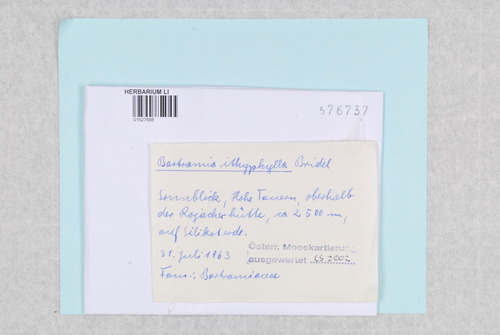 HERBARIUM LI
01627688
576737
Bartramia ithyphylla Bridel
Sonnblick, Hohe Tauern, oberhalb
der Rojacherhütte, ca 2500 m,
auf Silikaterde.
31. Juli 1963
Österr. Mooskartierung
ausgewertet CS 2002
Fam.: Bartramiaceae